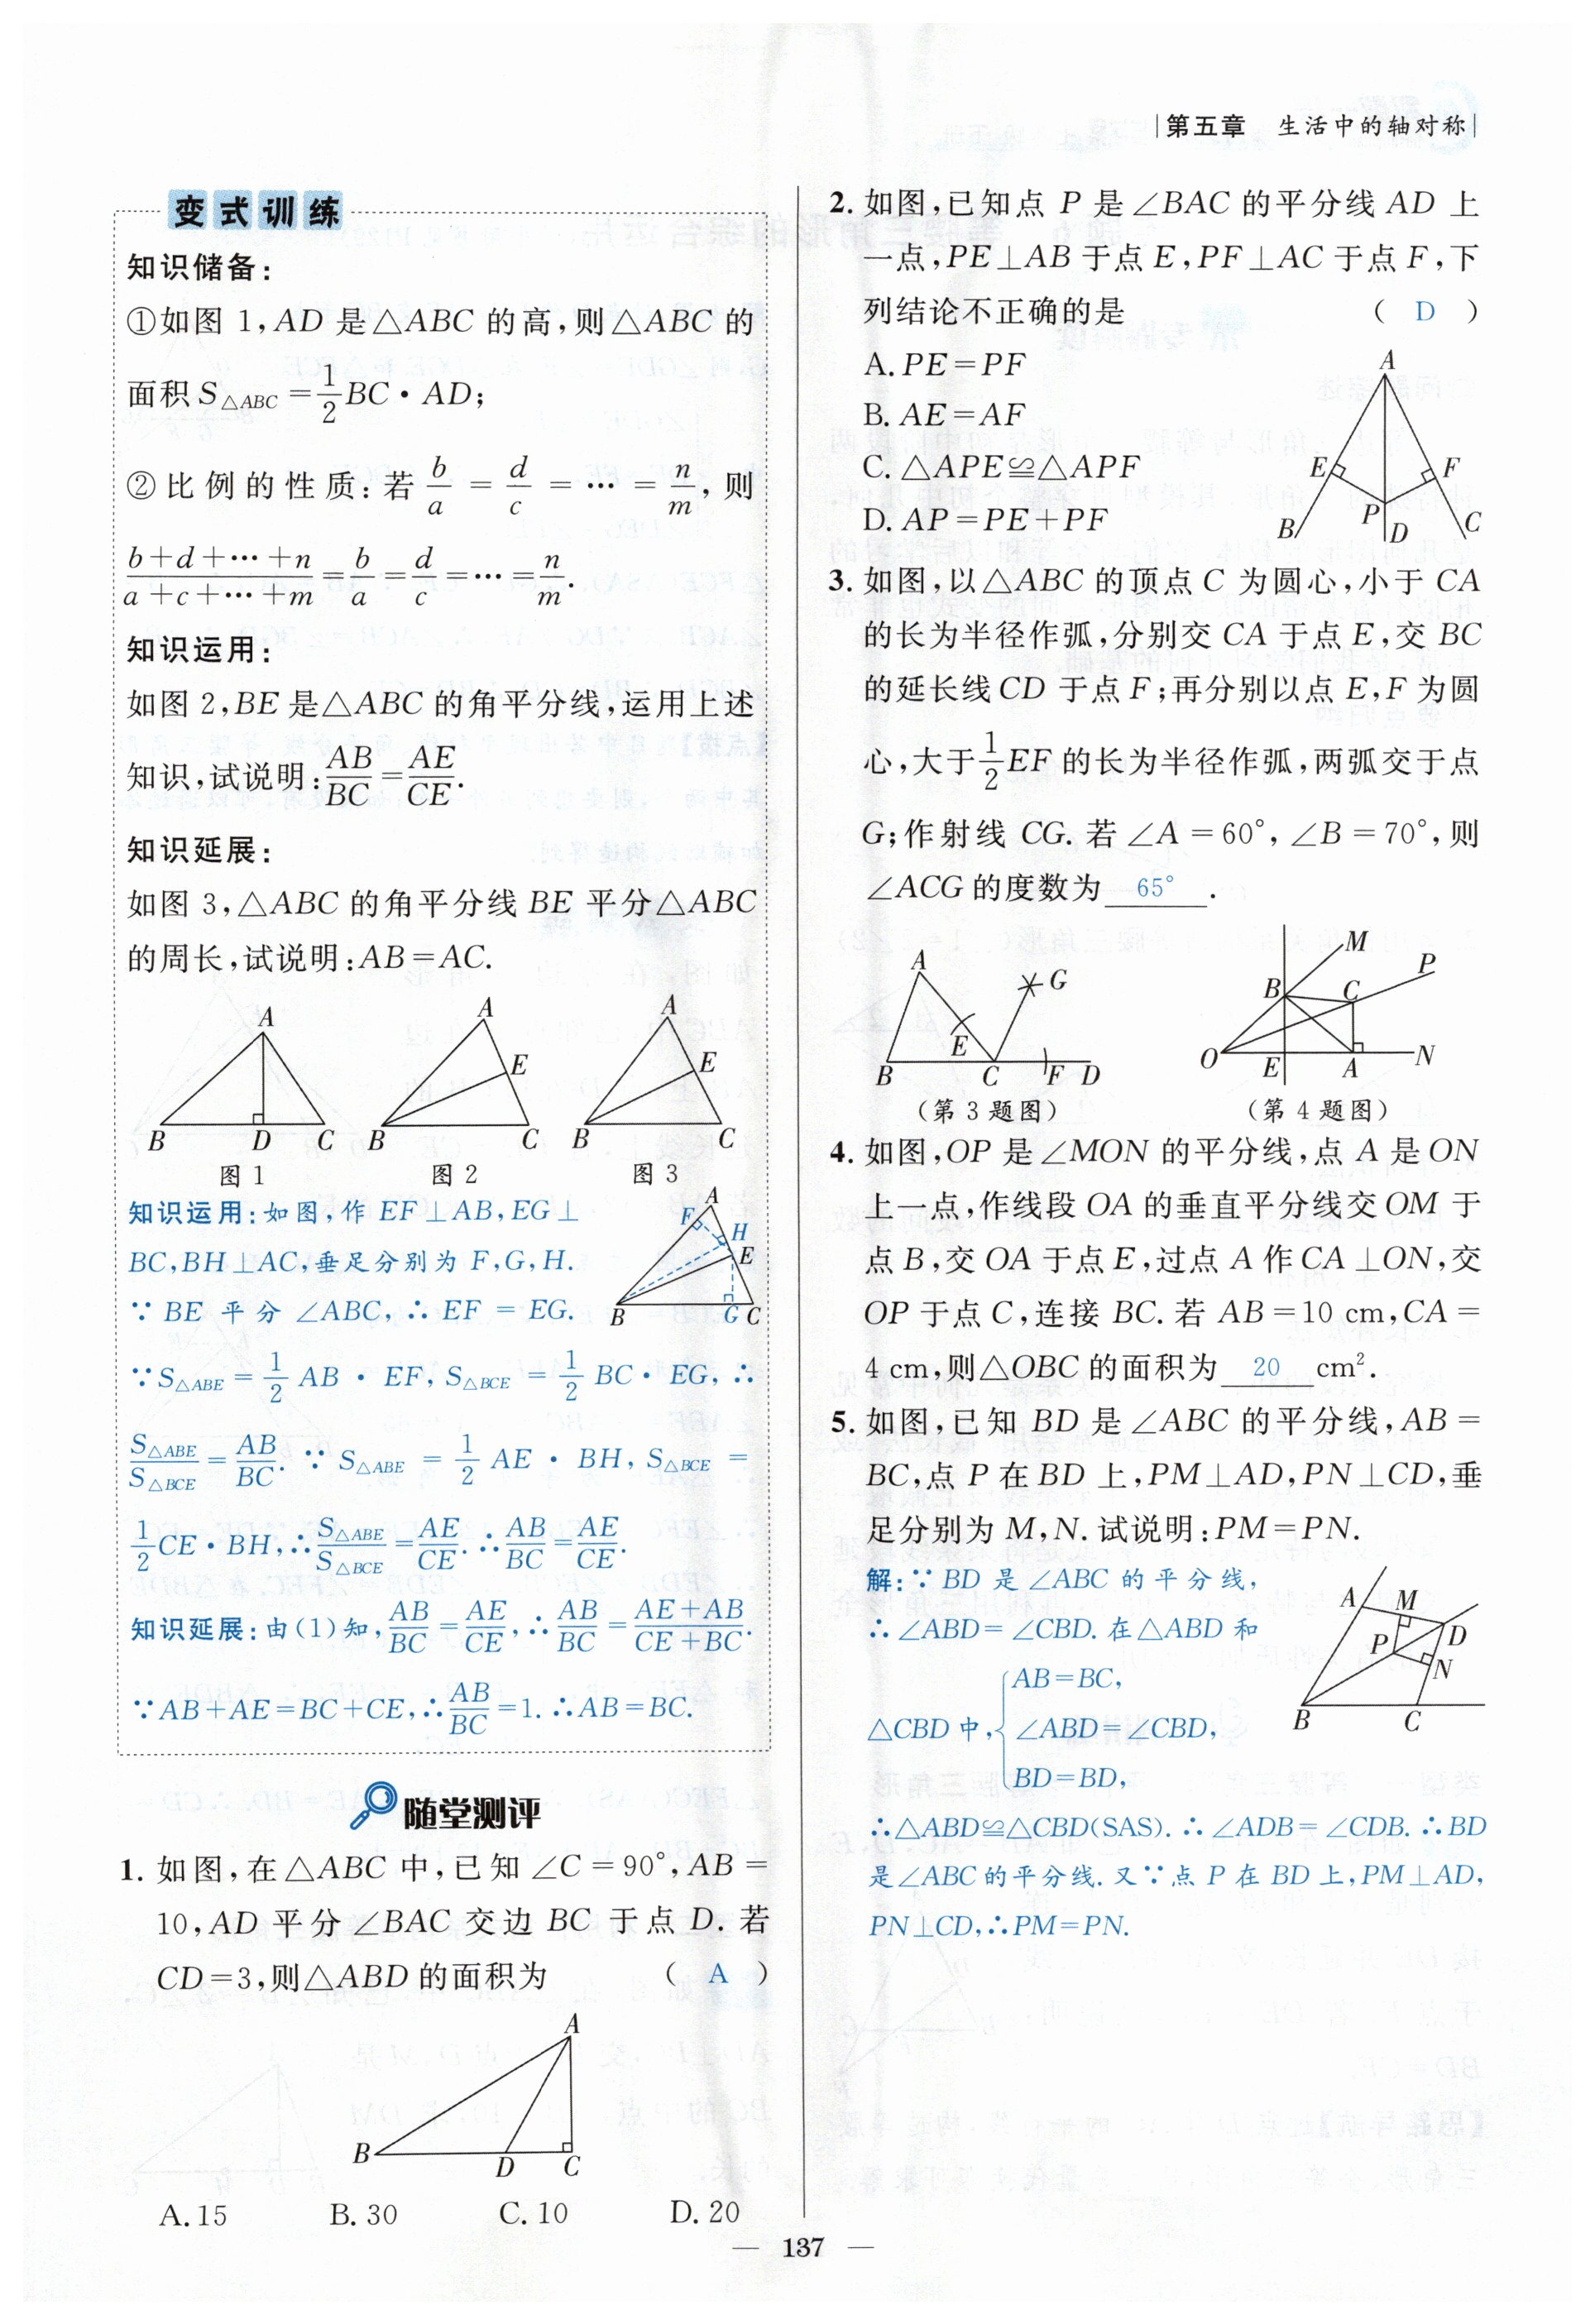 第五章 生活中的轴对称
变式训练
知识储备:
①如图 1,AD 是△ABC 的高,则△ABC 的
面积 S△ABC=1/2 BC·AD;
②比例的性质:若 b/a = d/c = … = n/m,则
(b+d+…+n)/(a+c+…+m) = b/a = d/c = … = n/m.
知识运用:
如图 2,BE 是△ABC 的角平分线,运用上述
知识,试说明:AB/BC = AE/CE.
知识延展:
如图 3,△ABC 的角平分线 BE 平分△ABC
的周长,试说明:AB=AC.
A B D C
A E B C
A E B C
图 1 图 2 图 3
知识运用:如图,作 EF⊥AB,EG⊥
BC,BH⊥AC,垂足分别为 F,G,H.
∵ BE 平分 ∠ABC, ∴ EF = EG.
A F H E B G C
∵S△ABE = 1/2 AB · EF, S△BCE = 1/2 BC · EG, ∴
S△ABE/S△BCE = AB/BC. ∵ S△ABE = 1/2 AE · BH, S△BCE =
1/2 CE·BH,∴ S△ABE/S△BCE = AE/CE. ∴ AB/BC = AE/CE.
知识延展:由(1)知, AB/BC = AE/CE, ∴ AB/BC = (AE+AB)/(CE+BC).
∵AB+AE=BC+CE,∴ AB/BC =1. ∴AB=BC.
随堂测评
1. 如图,在△ABC 中,已知∠C=90°,AB=
10,AD 平分∠BAC 交边 BC 于点 D. 若
CD=3,则△ABD 的面积为 ( A )
A B D C
A. 15 B. 30 C. 10 D. 20
2. 如图,已知点 P 是∠BAC 的平分线 AD 上
一点,PE⊥AB 于点 E,PF⊥AC 于点 F,下
列结论不正确的是 ( D )
A. PE=PF
B. AE=AF
C. △APE≌△APF
D. AP=PE+PF
A E F B P D C
3. 如图,以△ABC 的顶点 C 为圆心,小于 CA
的长为半径作弧,分别交 CA 于点 E,交 BC
的延长线 CD 于点 F;再分别以点 E,F 为圆
心,大于 1/2 EF 的长为半径作弧,两弧交于点
G;作射线 CG. 若∠A=60°,∠B=70°,则
∠ACG 的度数为 65° .
A G E B C F D
M P B C O E A N
(第 3 题图) (第 4 题图)
4. 如图,OP 是∠MON 的平分线,点 A 是 ON
上一点,作线段 OA 的垂直平分线交 OM 于
点 B,交 OA 于点 E,过点 A 作 CA⊥ON,交
OP 于点 C,连接 BC. 若 AB=10 cm,CA=
4 cm,则△OBC 的面积为 20 cm².
5. 如图,已知 BD 是∠ABC 的平分线,AB=
BC,点 P 在 BD 上,PM⊥AD,PN⊥CD,垂
足分别为 M,N. 试说明:PM=PN.
解:∵ BD 是 ∠ABC 的平分线,
∴ ∠ABD=∠CBD. 在△ABD 和
△CBD 中,{AB=BC,
∠ABD=∠CBD,
BD=BD,
A M D P N B C
∴△ABD≌△CBD(SAS). ∴ ∠ADB=∠CDB. ∴BD
是∠ABC 的平分线. 又∵点 P 在 BD 上,PM⊥AD,
PN⊥CD,∴PM=PN.
— 137 —